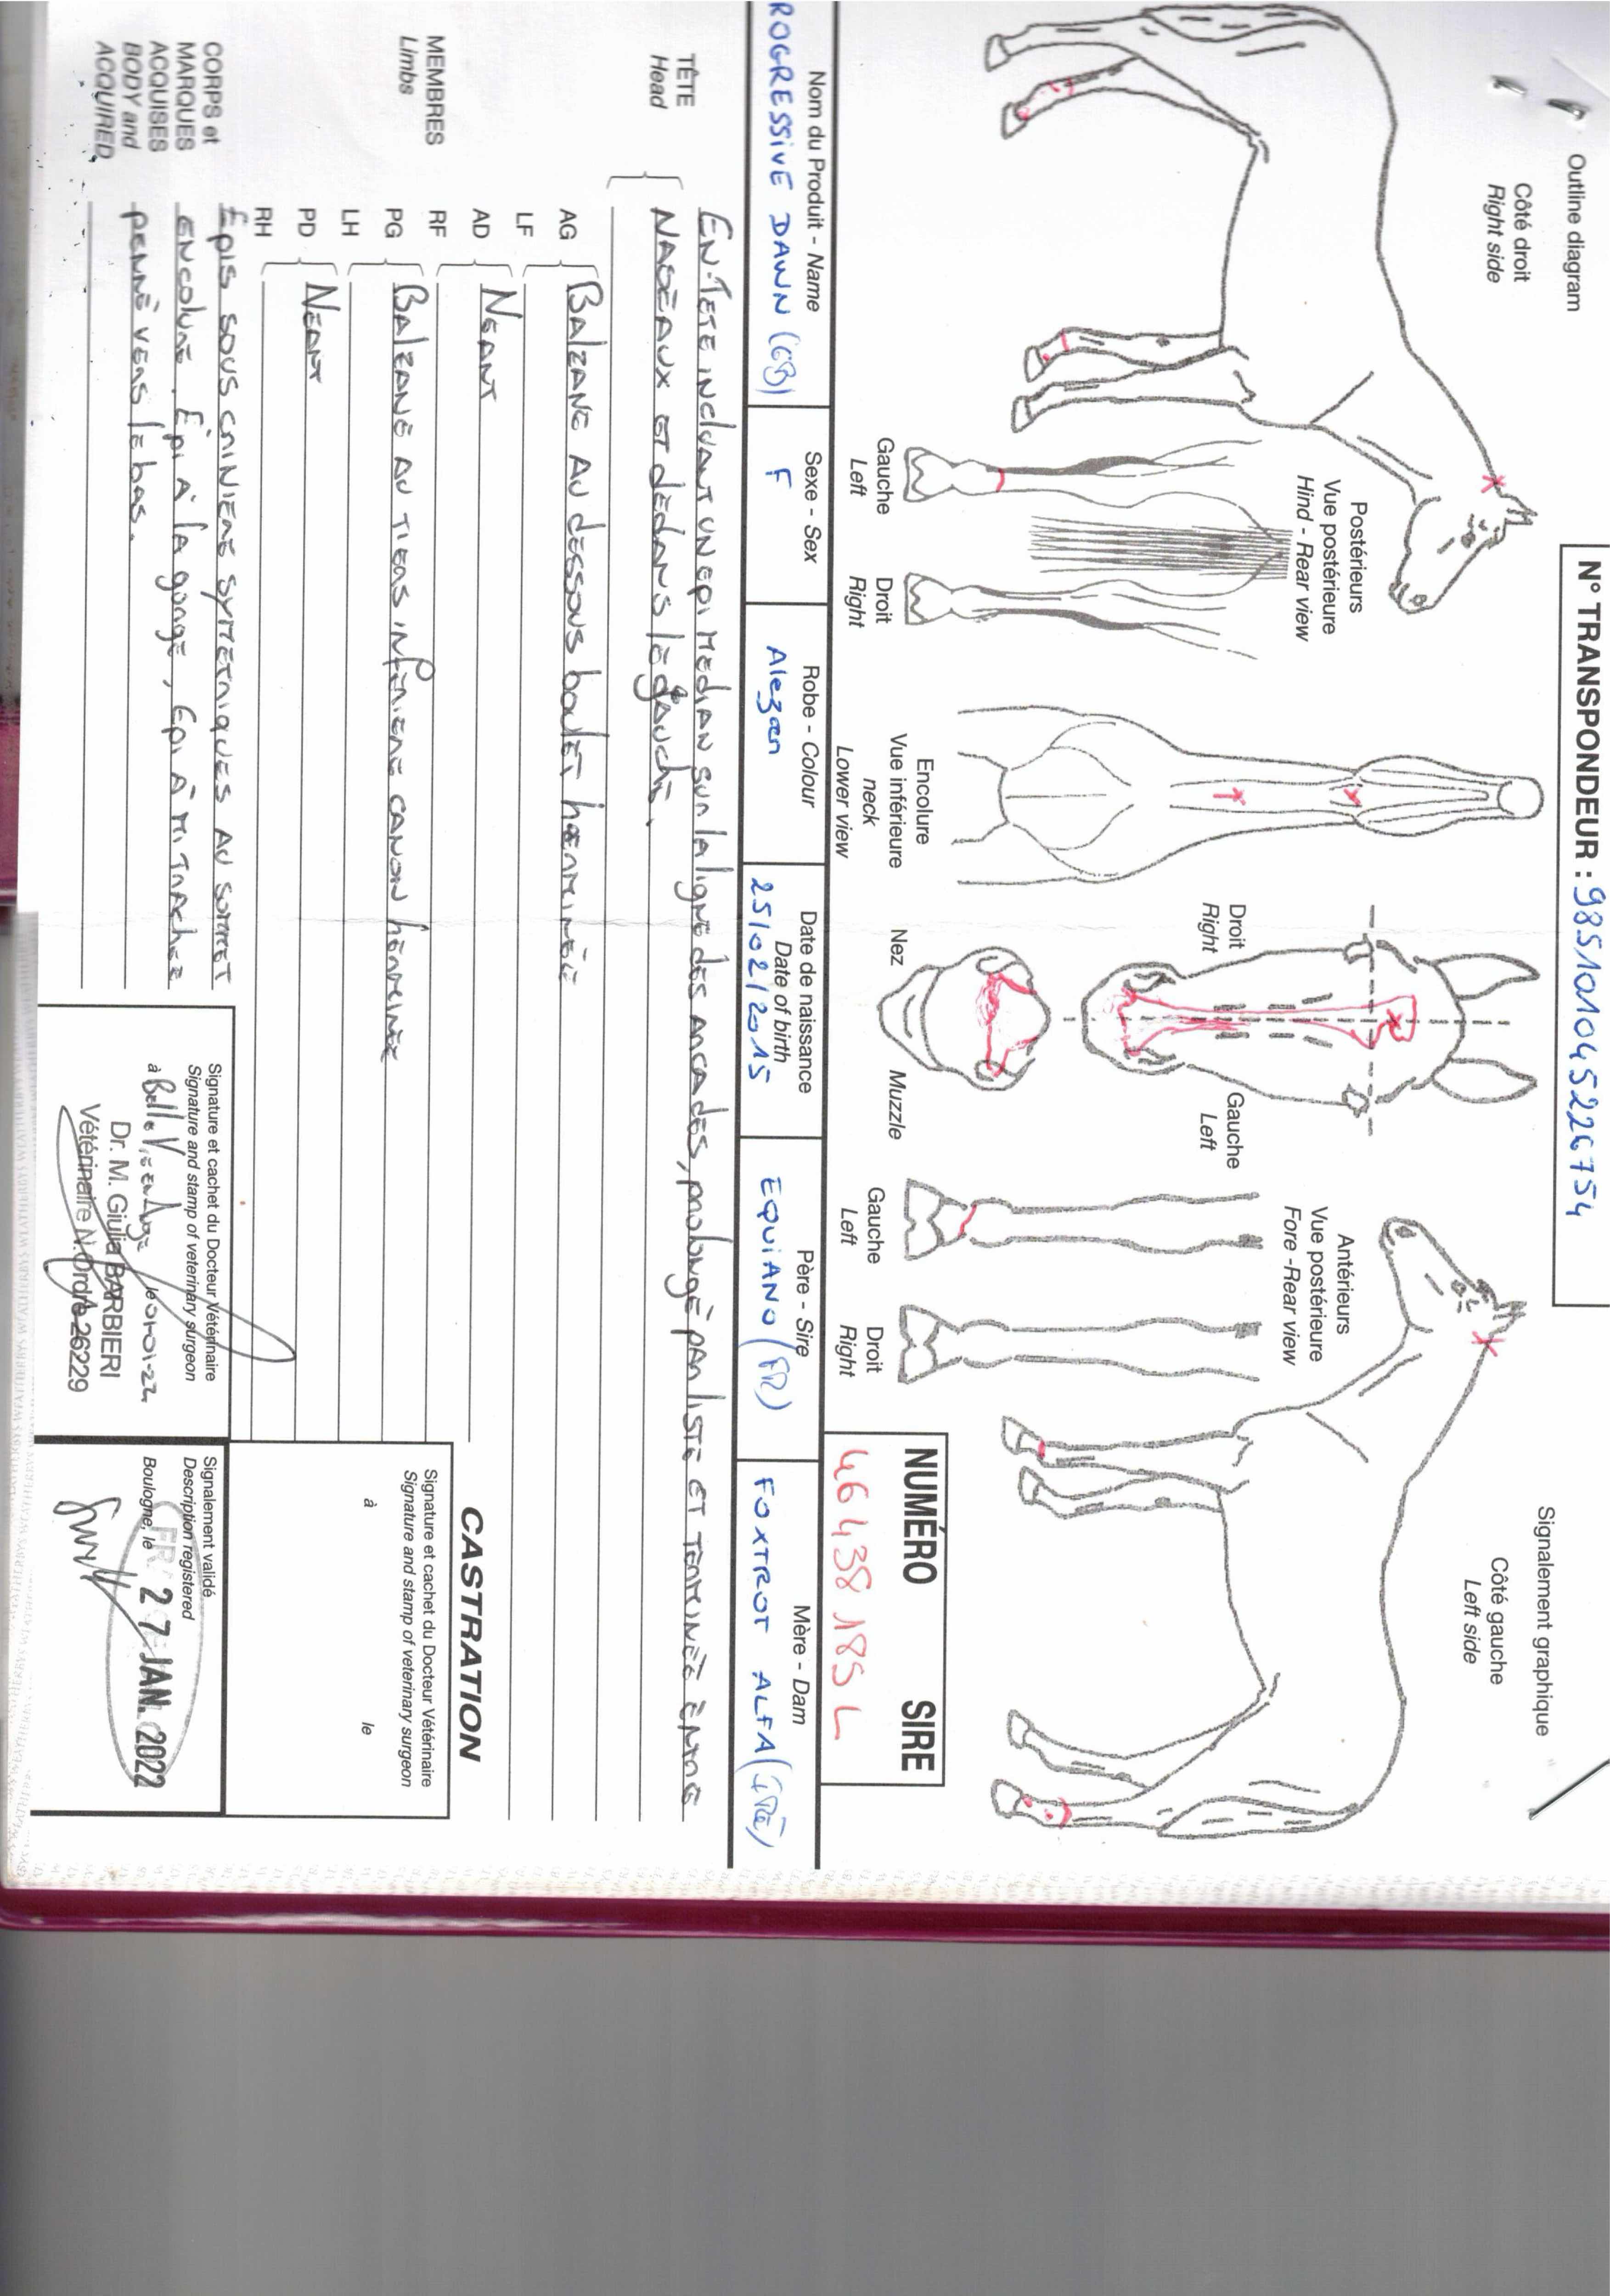 Outline diagram
N° TRANSPONDEUR : 985101045226754
Signalement graphique
Côté droit
Right side
Postérieurs
Vue postérieure
Hind - Rear view
Gauche
Left
Droit
Right
Encolure
Vue inférieure
neck
Lower view
Droit
Right
Gauche
Left
Nez
Muzzle
Antérieurs
Vue postérieure
Fore - Rear view
Gauche
Left
Droit
Right
Côté gauche
Left side
NUMÉRO SIRE
46 438 185 L
Nom du Produit - Name
Sexe - Sex
Robe - Colour
Date de naissance
Date of birth
Père - Sire
Mère - Dam
ROGRESSIVE DAWN (GB)
F
Alezan
25/02/2015
EQUIANO (FR)
FOXTROT ALFA (IRE)
TÊTE
Head
EN TETE INCLUANT UN EPI MEDIAN SUR LA LIGNE DES ARCADES, prolongé par liste et terminée entre
NASEAUX ET dedans le gauche.
MEMBRES
Limbs
AG
LF
BALZANE AU dessous boulet herminée
AD
RF
NEANT
PG
LH
BALZANE AU TIERS INFÉRIEUR CANON herminée
PD
RH
NEANT
CORPS et
MARQUES
ACQUISES
BODY and
ACQUIRED
Epis sous crinière symétriques au sommet
encolure. Epi à la gorge, Epi à mi trachée
penné vers le bas.
CASTRATION
Signature et cachet du Docteur Vétérinaire
Signature and stamp of veterinary surgeon
à
le
Signature et cachet du Docteur Vétérinaire
Signature and stamp of veterinary surgeon
à
le
Dr. M. Giulia BARBIERI
Vétérinaire N.Ordre 26229
Signalement validé
Description registered
Boulogne, le
27 JAN. 2022